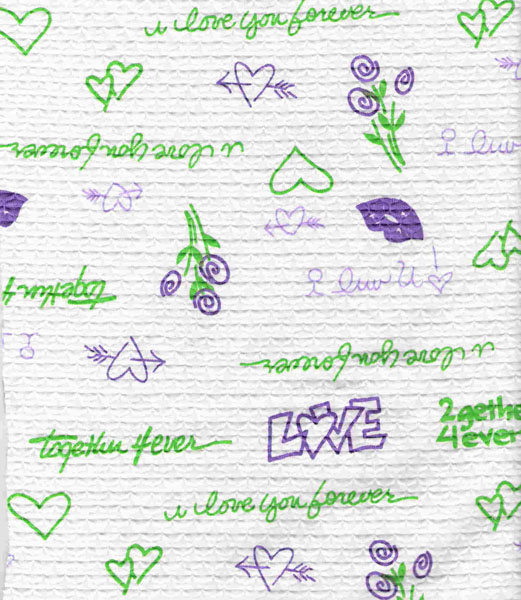 u love you forever
I luv
u love you forever
I luv U!
together 4
I
u love you forever
LOVE
2gethe
4ever
together 4ever
u love you forever